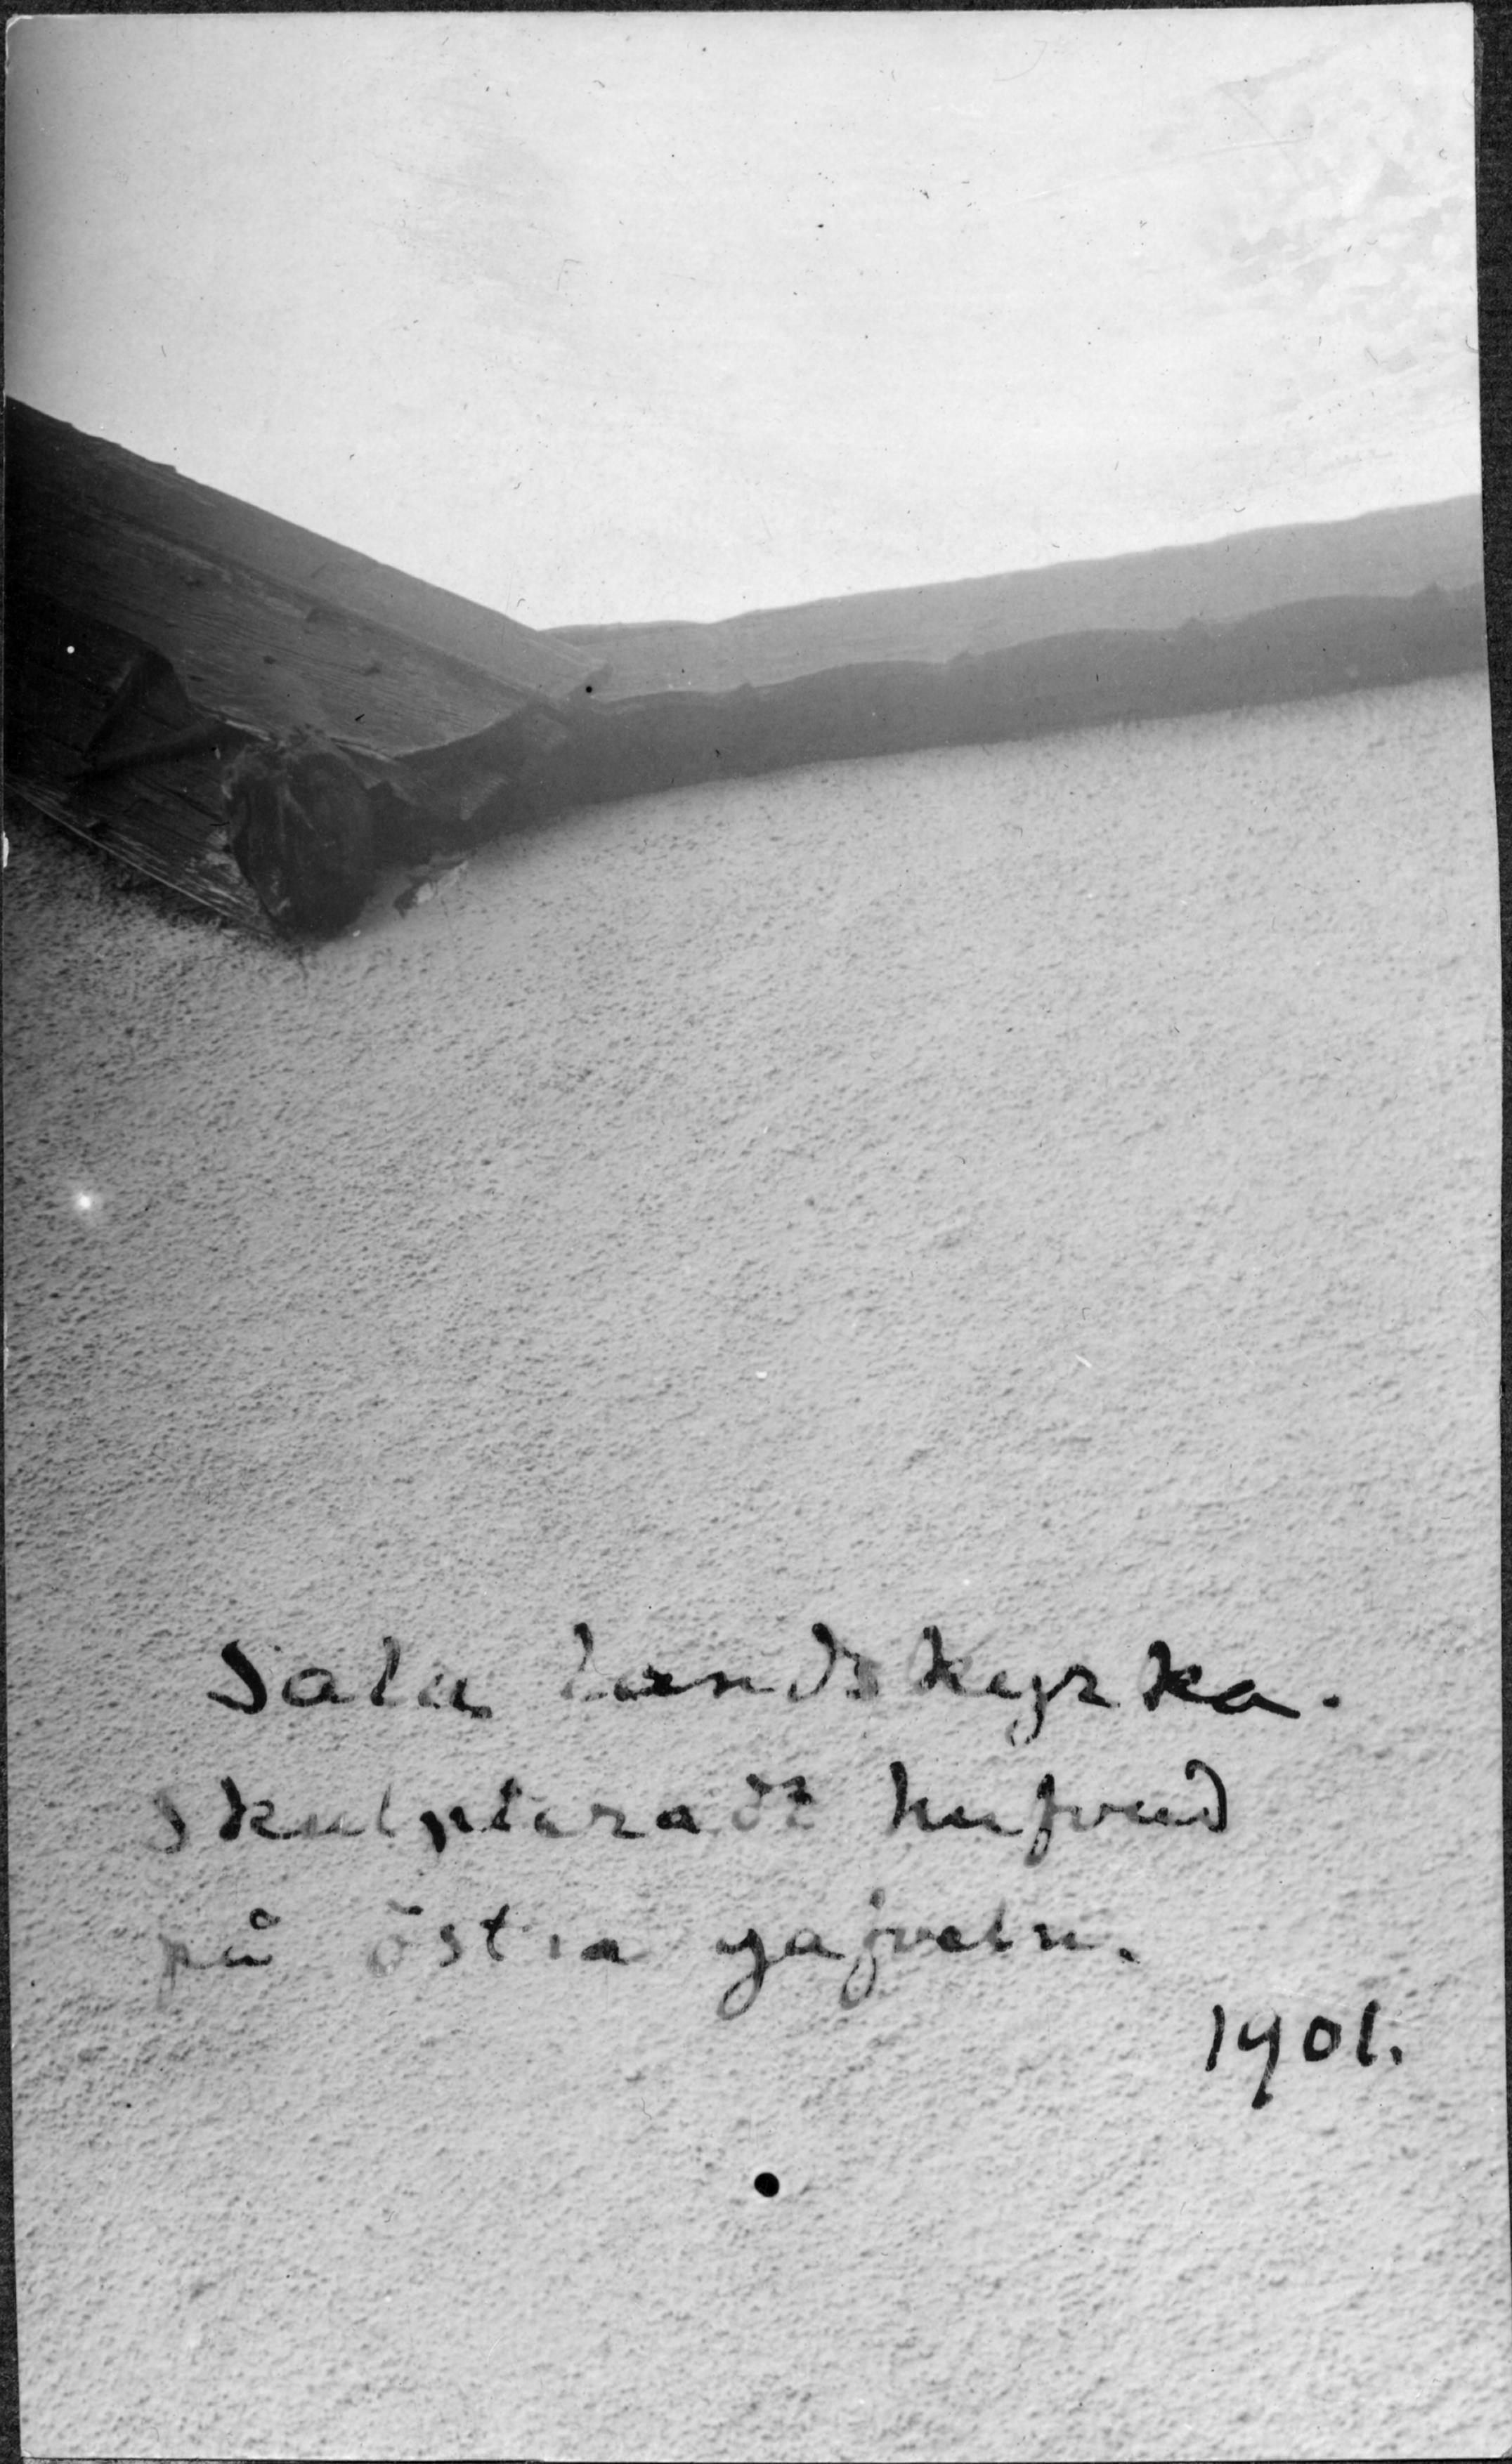 Sala landskyrka.
Skulpteradt hufvud
på östra gafveln.
1901.